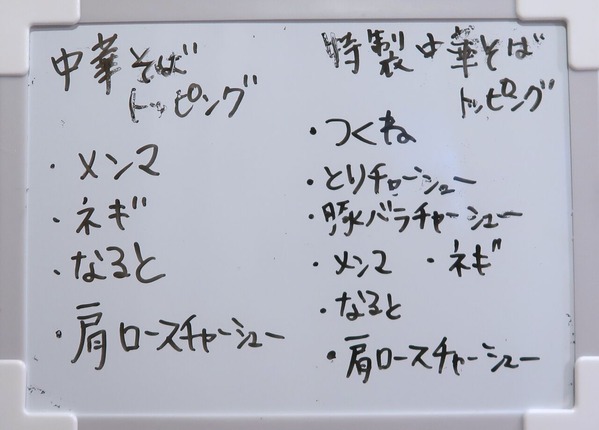 中華そば
トッピング
・メンマ
・ネギ
・なると
・肩ロースチャーシュー
特製中華そば
トッピング
・つくね
・とりチャーシュー
・豚バラチャーシュー
・メンマ ・ネギ
・なると
・肩ロースチャーシュー